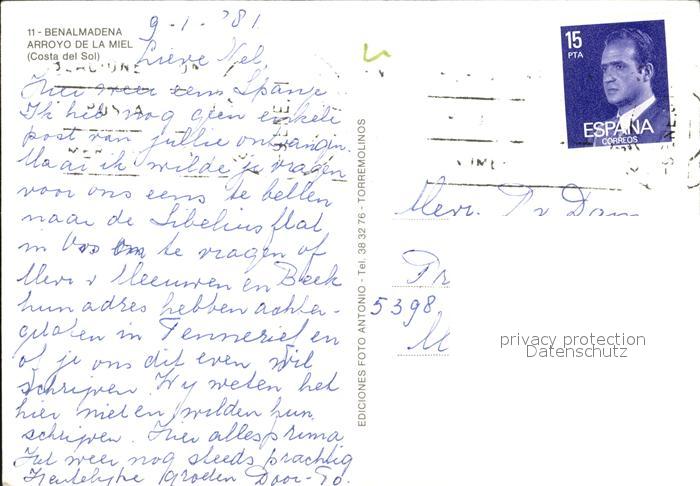 11 - BENALMADENA
ARROYO DE LA MIEL
(Costa del Sol)
9-1-'81
Lieve Nel,
Hier weer eens Spanje
Ik heb nog geen enkele
post van jullie ontvangen.
Maar ik wilde je vragen
voor ons eens te bellen
naar de Sibeliusflat
in Oss om te vragen of
Mevr v Meeuwen en Beek
hun adres hebben achter-
gelaten in Tennerief en
of je ons dit even wil
schrijven Wij weten het
hier niet en wilden hun
schrijven. Hier alles prima
Het weer nog steeds prachtig
Hartelijke groeten Door-To.
EDICIONES FOTO ANTONIO - Tel. 38 32 76 - TORREMOLINOS
15
PTA
ESPAÑA
CORREOS
Mevr.
5398
M
privacy protection
Datenschutz